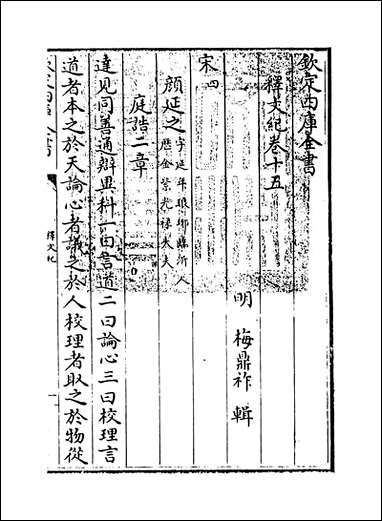 欽定四庫全書
釋文紀卷十五
明 梅鼎祚 輯
宋四
顔延之
字延年琅邪臨沂人
歴金紫光禄大夫
庭誥二章
達見同善通辯異科一曰言道二曰論心三曰校理言
道者本之於天論心者議之於人校理者取之於物從
釋文紀